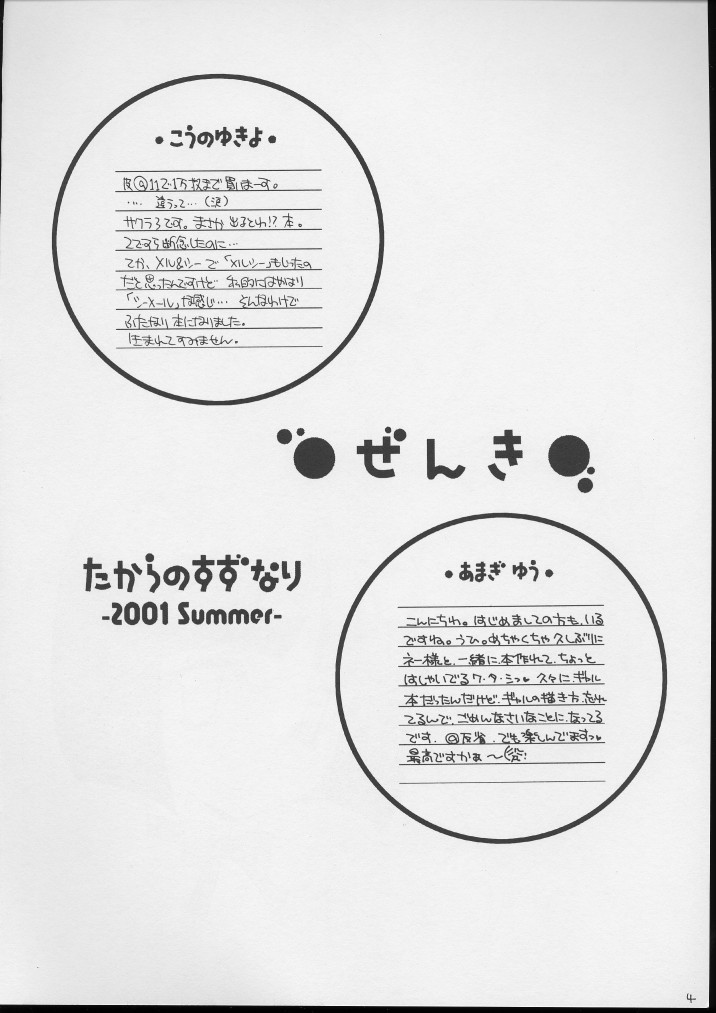 ・こうのゆきよ・
反@112・1万枚まで買いまーす。
…. 違うって…(涙)
サクラ3です。まさか出るとわ!? 本。
2ですら断念したのに…
てか、メル&シーで「メルシー」もじったの
だと思ったんですけど 私的にはやはり
「シーメール」な感じ… そんなわけで
ふたなり本になりました。
生まれてすみません。
ぜんき
たからのすずなり
-2001 Summer-
・あまぎ ゆう・
こんにちわ。はじめましての方も、いる
ですね。うひ。めちゃくちゃ久しぶりに
ネー様と、一緒に、本作れて、ちょっと
はしゃいでるワ・タ・シっ♥ 久々に ギャル
本だったんだけど、ギャルの描き方、忘れ
てるんで、ごめんなさいなことに、なってる
です。@反省、でも楽しんでますっ♥
最高ですかぁ〜
4